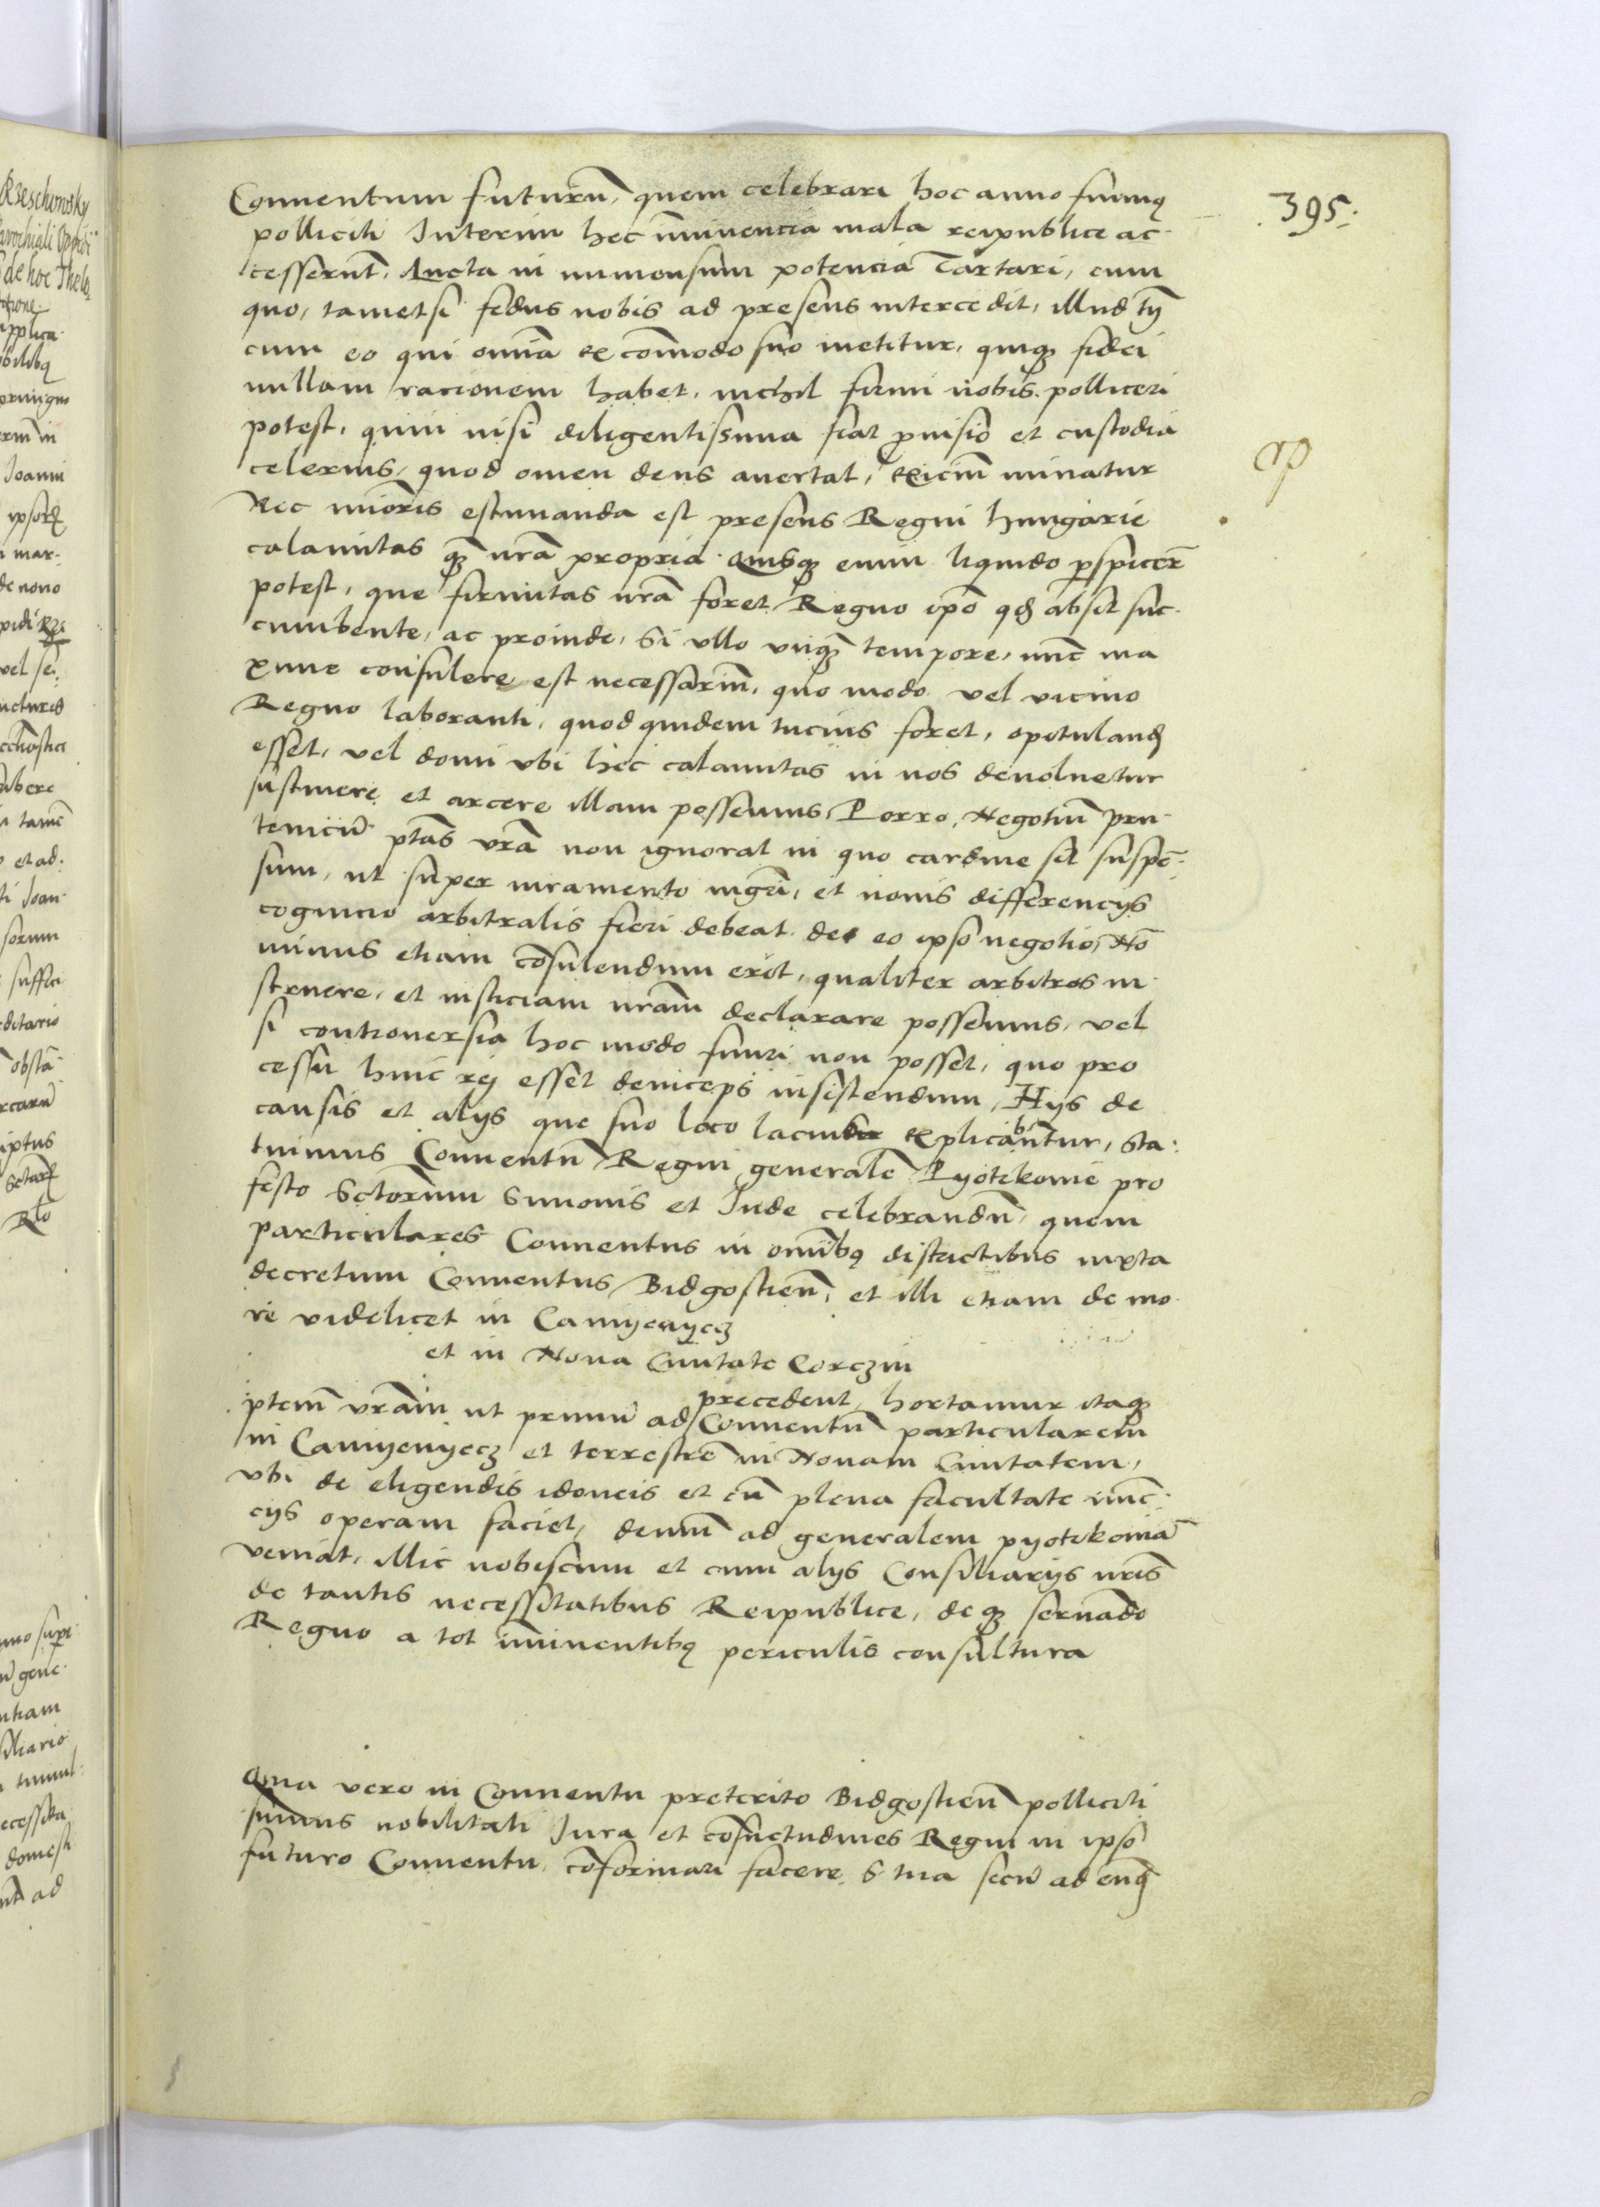 395.
Conuentum futurū, quem celebrari hoc anno fuimꝰ
polliciti Interim hec īminencia mala reipublice ac-
cesserūt. Aucta in immensum potencia Tartari, cum
quo, tametsi fedus nobis ad presens intercedit, illud tn̄
cum eo qui omīa ex cōmodo suo metitur, quiqꝫ fidei
nullam racionem habet, nichil firmi nobis polliceri
potest, quin nisi diligentissima fiat ꝓuisio et custodia
celerius, quod omen deus auertat, exiciū minatur
Nec mīoris estimanda est presens Regni hungarie
calamitas qꝫ nrā propria. Quisqꝫ enim liquido ꝑspicerē
potest, que firmitas nrā foret Regno ipō qđ absit suc-
cumbente, ac proinde, Si vllo vnqꝫ tempore, nūc ma
xime consulere est necessariū, quo modo vel vicino
Regno laboranti, quod quidem tucius foret, opitulanđ
esset, vel domi vbi hec calamitas in nos deuoluetur
sustinere et arcere illam possemus, Porro, Negotiū pru-
tenicū ptās vrā non ignorat in quo cardine sit suspē-
sum, ut super iuramento et nouis differencijs
cognicio arbitralis fieri debeat. de eo ipso negotio, Nō
minus etiam cōsulendum erit, qualiter arbitros in-
struere, et iusticiam nrām declarare possemus, vel
si controuersia hoc modo finiri non posset, quo pro
cessu huic rei esset deinceps insistendum, Hijs de
causis et alijs que suo loco explicabūntur, Sta-
tuimus Conuentū Regni generalē Pyotrkouie pro
festo Sctorum Simonis et Iude celebrandū, quem
particulares Conuentus in omībꝰ districtibus iuxta
decretum Conuentus Bidgostieñ, et illi etiam de mo-
re videlicet in Camyenyecz
et in Noua Ciuitate Corczin
precedent, hortamur itaqꝫ
ptem̄ vrām ut primū ad Conuentū particularem
in Camyenyecz et terrestrē in Nouam Ciuitatem,
vbi de eligendis idoneis et cū plena facultate nūc-
cijs operam faciet, demū ad generalem pyotrkouiā
veniat, illic nobiscum et cum alijs Consiliarijs nrīs
de tantis necessitatibus Reipublice, deqꝫ seruādo
Regno a tot īminentibꝰ periculis consultura
Quia vero in Conuentu preterito Bidgostieñ polliciti
sumus nobilitati Iura et cōsuetudines Regni in ipso
futuro Conuentu, cōformari facere. S tua secū ad